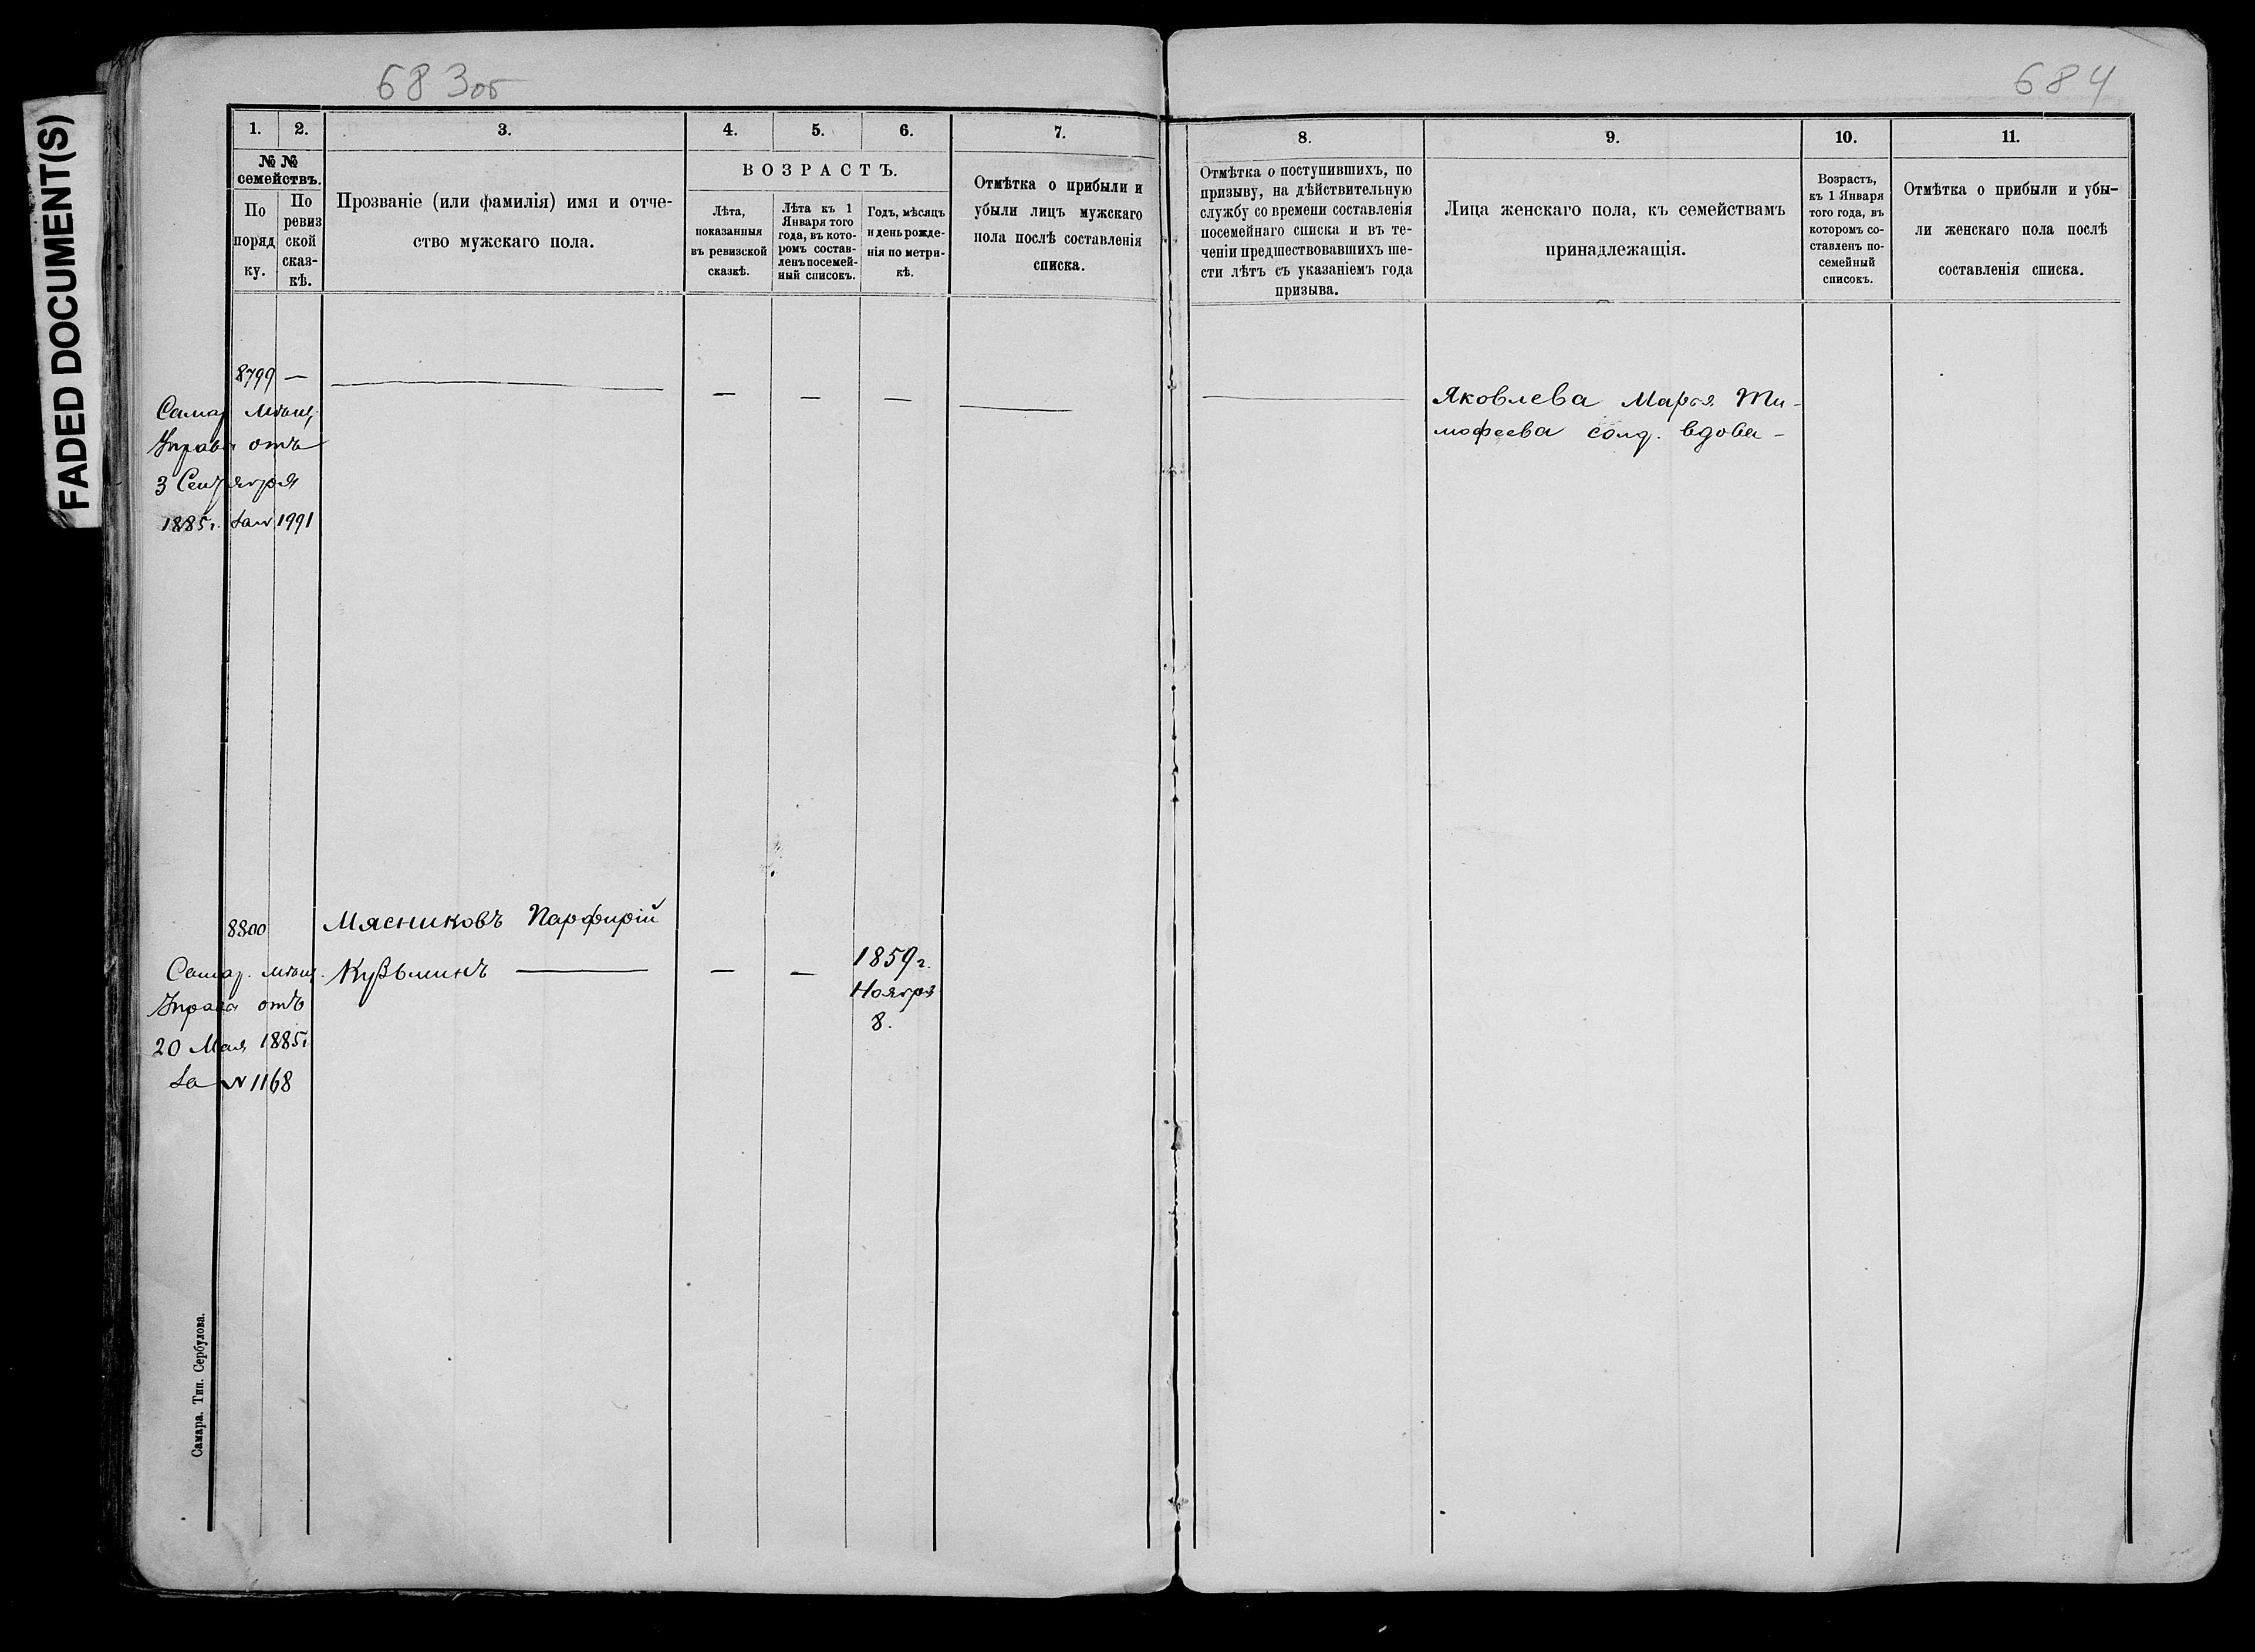 FADED DOCUMENT(S)
683об
684
1.
2.
3.
4.
5.
6.
7.
8.
9.
10.
11.
№ №
семействъ.
По
поряд
ку.
По
ревиз
ской
сказ-
кѣ.
Прозваніе (или фамилія) имя и отче-
ство мужскаго пола.
ВОЗРАСТЪ.
Лѣта,
показанныя
въ ревизской
сказкѣ.
Лѣта къ 1
Января того
года, въ кото-
ромъ состав-
ленъ посемей-
ный списокъ.
Годъ, мѣсяцъ
и день рожде-
нія по метри-
кѣ.
Отмѣтка о прибыли и
убыли лицъ мужскаго
пола послѣ составленія
списка.
Отмѣтка о поступившихъ, по
призыву, на дѣйствительную
службу со времени составленія
посемейнаго списка и въ те-
ченіи предшествовавшихъ ше-
сти лѣтъ съ указаніемъ года
призыва.
Лица женскаго пола, къ семействамъ
принадлежащія.
Возрастъ,
къ 1 Января
того года, въ
которомъ со-
ставленъ по-
семейный
списокъ.
Отмѣтка о прибыли и убы-
ли женскаго пола послѣ
составленія списка.
8799 —
Самар. Мѣщ.
Управа отъ
3 Сентября
1885г. за № 1991
Яковлева Марья Ти-
мофеева солд. вдова -
8800
Мясниковъ Парфирій
Кузьминъ — — —
1859 г.
Ноября
8.
Самар. мѣщ.
Управа отъ
20 Мая 1885г
за № 1168
Самара. Тип. Сербулова.